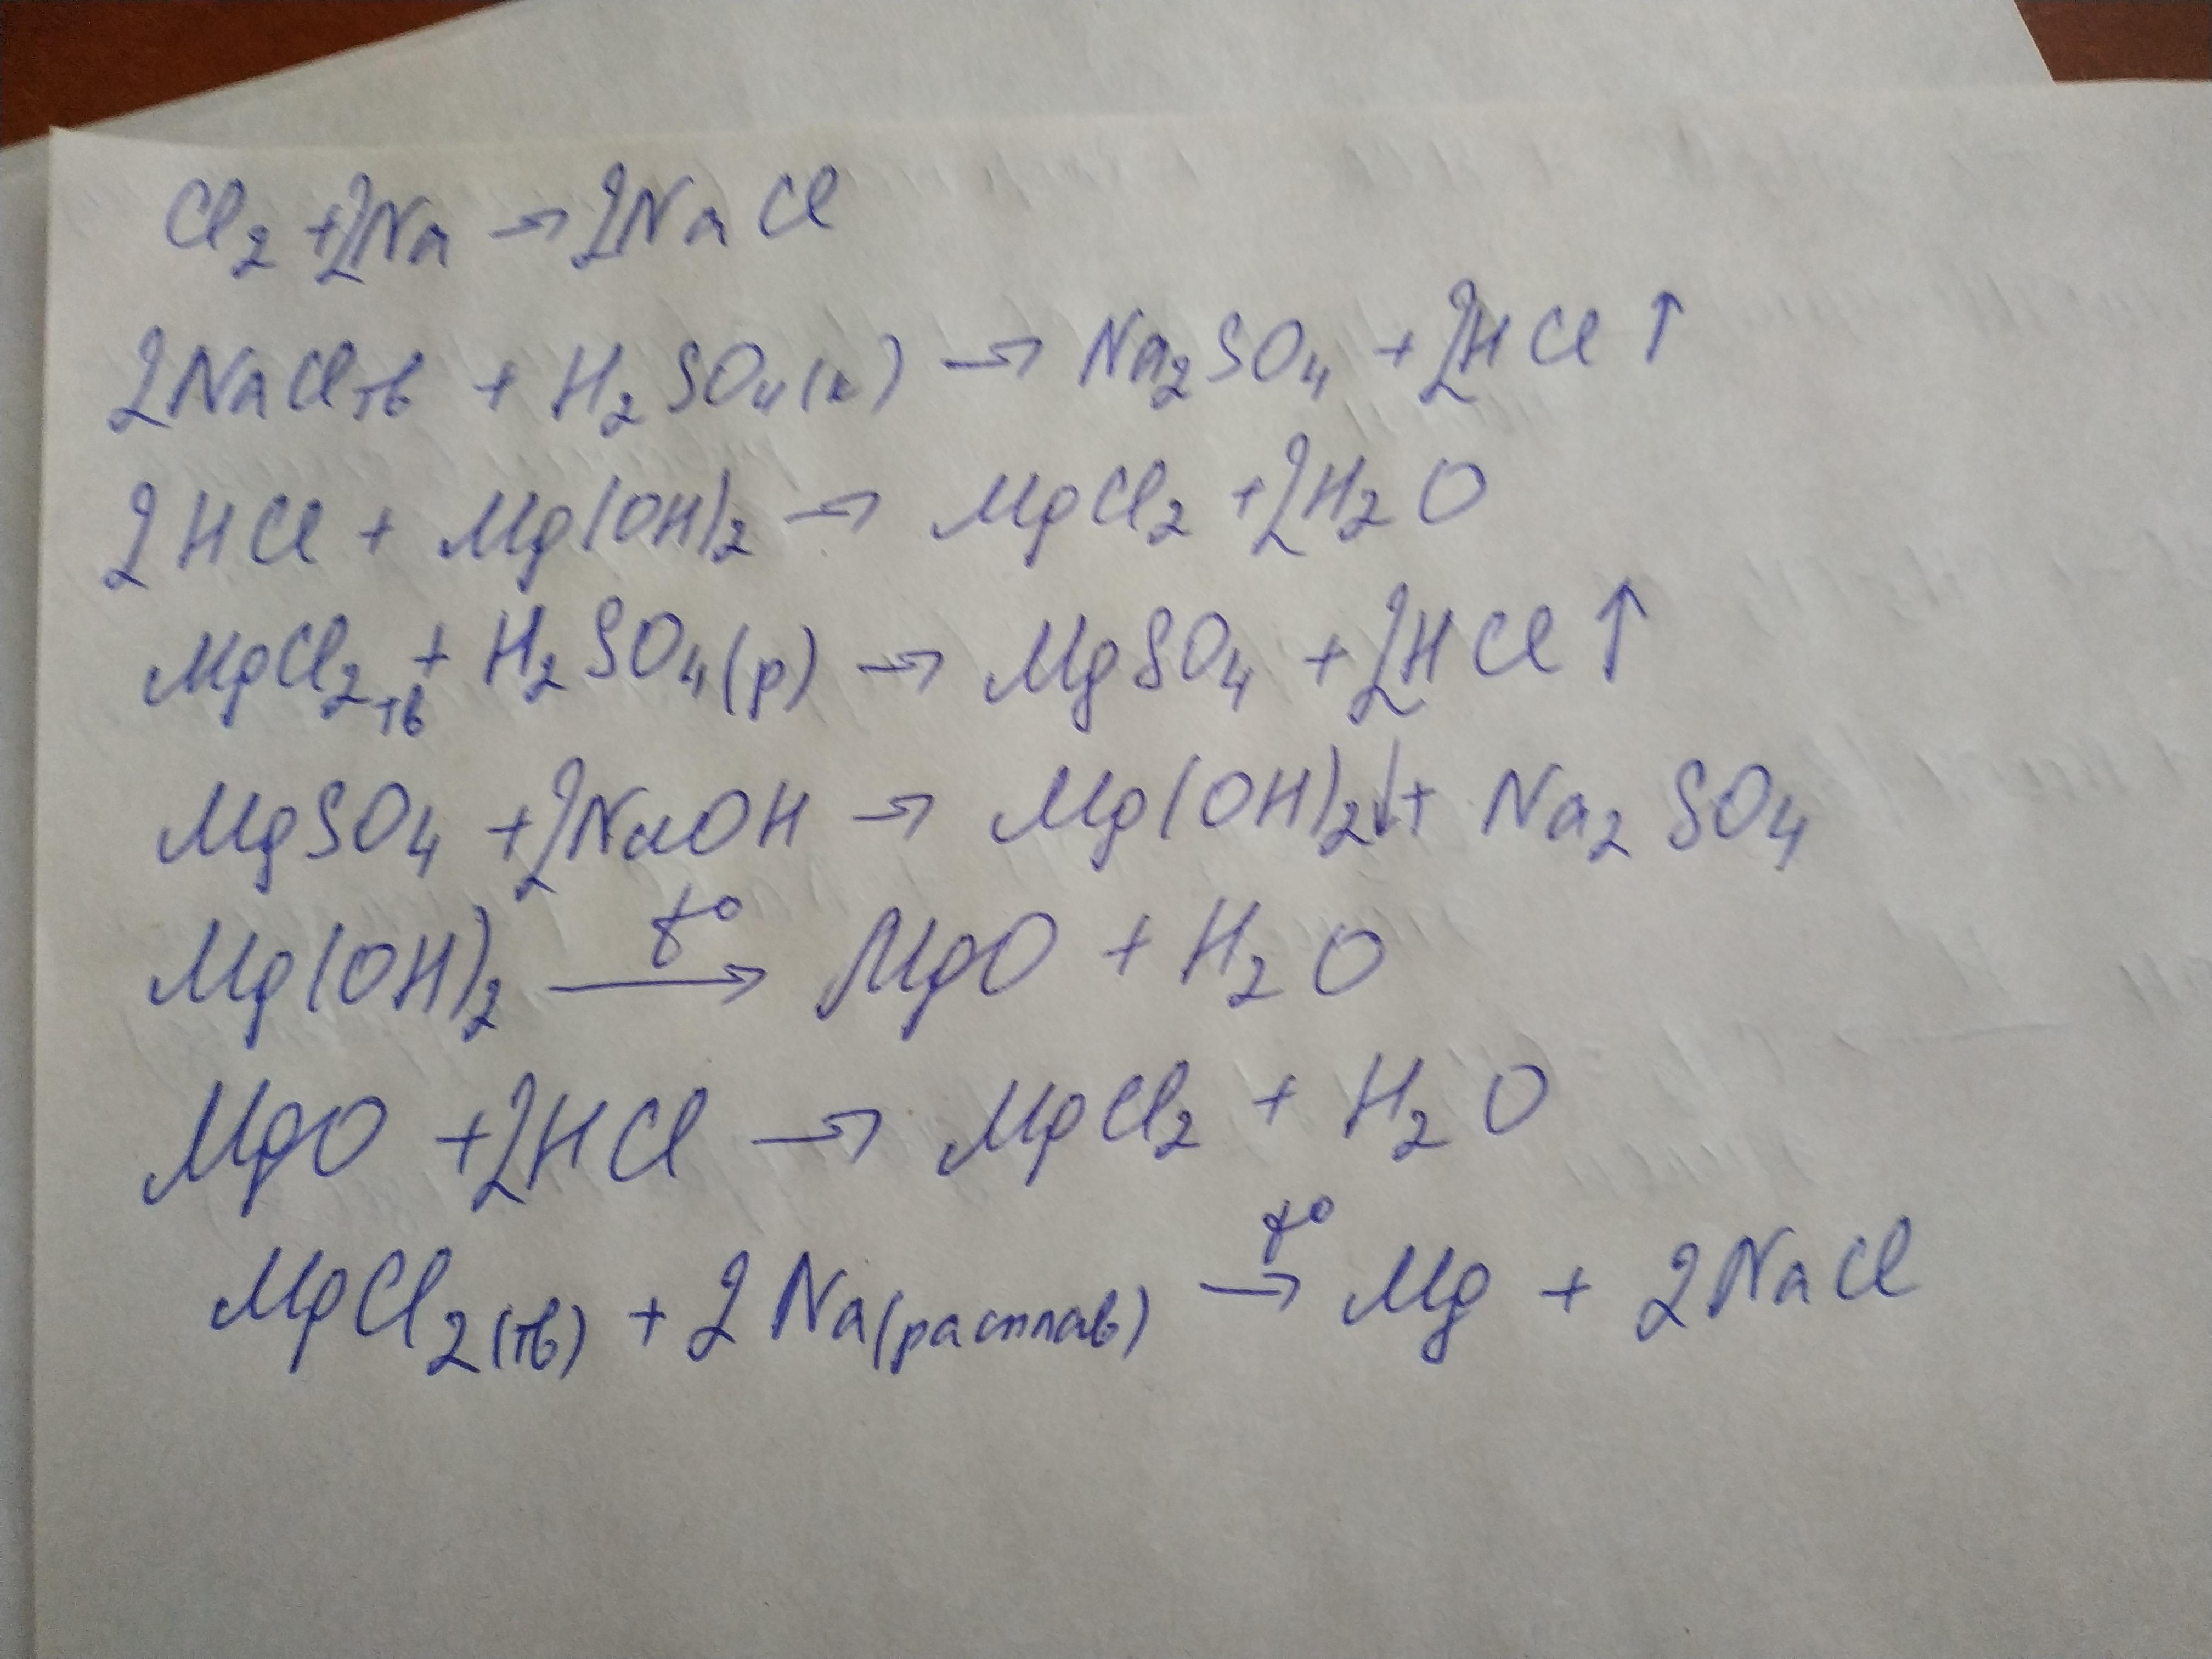 Cl₂ + 2Na → 2NaCl
2NaClтв + H₂SO₄(к) → Na₂SO₄ + 2HCl ↑
2HCl + Mg(OH)₂ → MgCl₂ + 2H₂O
MgCl₂тв + H₂SO₄(р) → MgSO₄ + 2HCl ↑
MgSO₄ + 2NaOH → Mg(OH)₂↓ + Na₂SO₄
Mg(OH)₂ →t° MgO + H₂O
MgO + 2HCl → MgCl₂ + H₂O
MgCl₂(тв) + 2Na(расплав) →t° Mg + 2NaCl